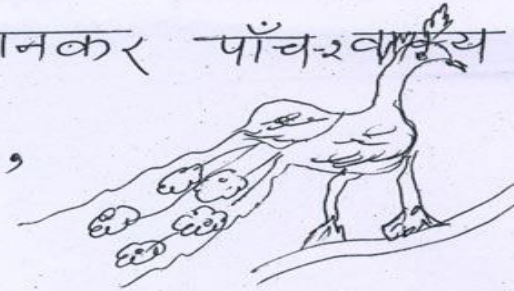 नकर पाँच-२ वाक्य
,